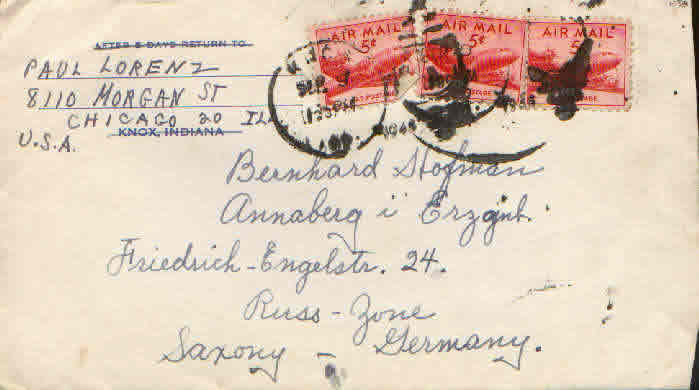 AFTER 5 DAYS RETURN TO
PAUL LORENZ
8110 MORGAN ST
CHICAGO 20 ILL
KNOX, INDIANA
U.S.A.
AIR MAIL
5¢
AIR MAIL
5¢
AIR MAIL
5¢
Bernhard Hofman
Annaberg i
Friedrich-Engelstr. 24.
Russ-Zone
Saxony - Germany.